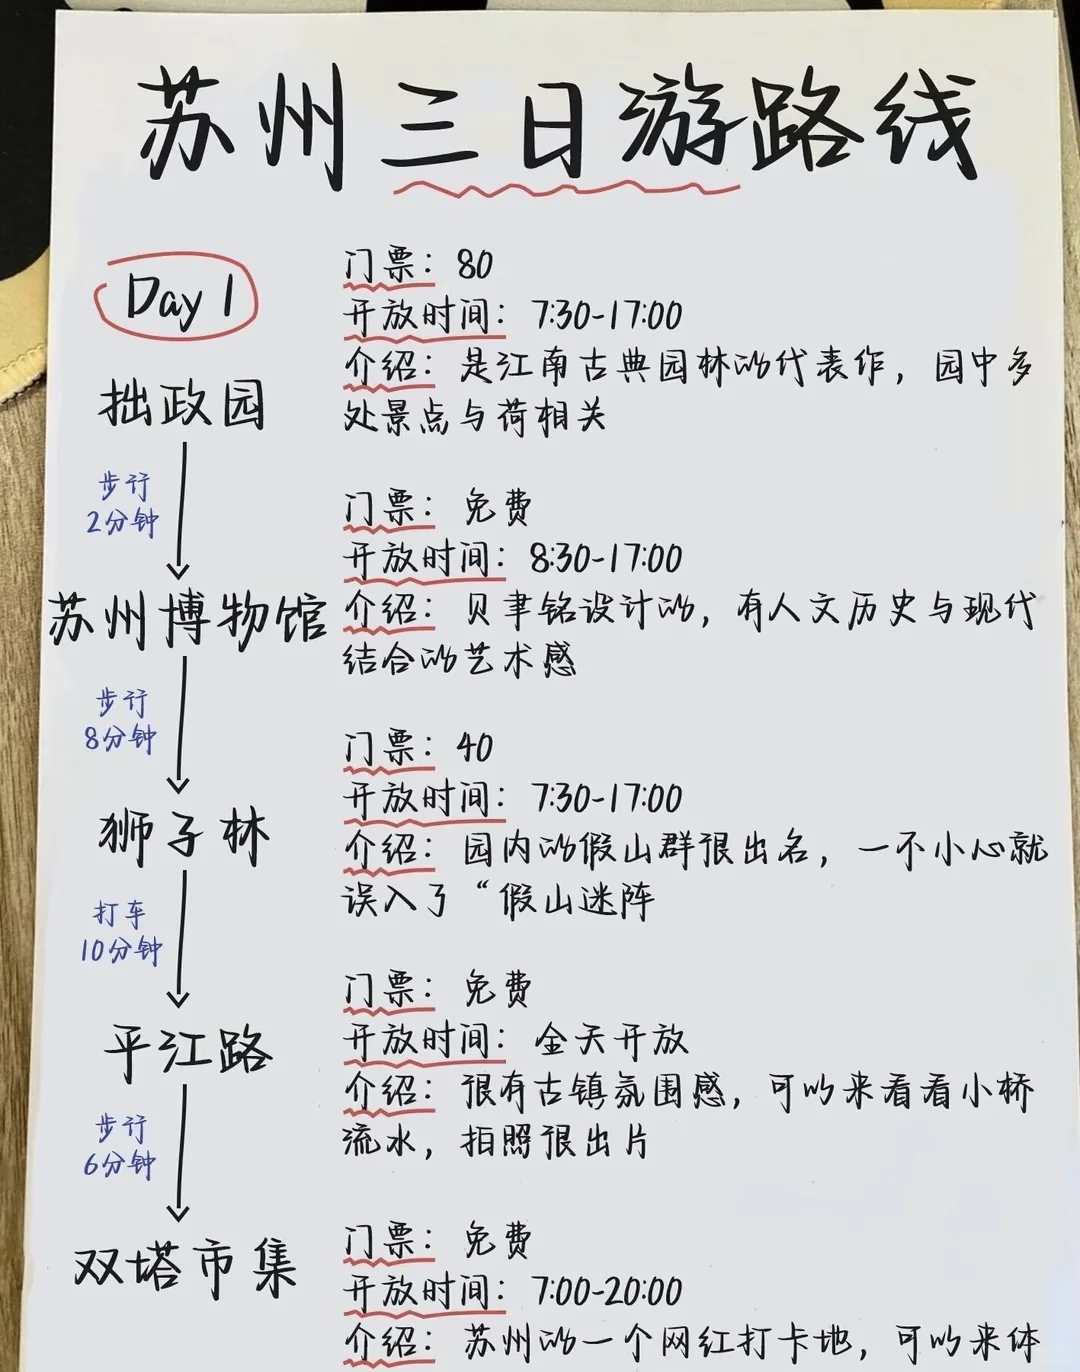 苏州三日游路线
Day 1
门票：80
开放时间：7:30-17:00
介绍：是江南古典园林的代表作，园中多
处景点与荷相关
拙政园
步行
2分钟
门票：免费
开放时间：8:30-17:00
介绍：贝聿铭设计的，有人文历史与现代
结合的艺术感
苏州博物馆
步行
8分钟
门票：40
开放时间：7:30-17:00
介绍：园内的假山群很出名，一不小心就
误入了“假山迷阵
狮子林
打车
10分钟
门票：免费
开放时间：全天开放
介绍：很有古镇氛围感，可以来看看小桥
流水，拍照很出片
平江路
步行
6分钟
门票：免费
开放时间：7:00-20:00
介绍：苏州的一个网红打卡地，可以来体
双塔市集